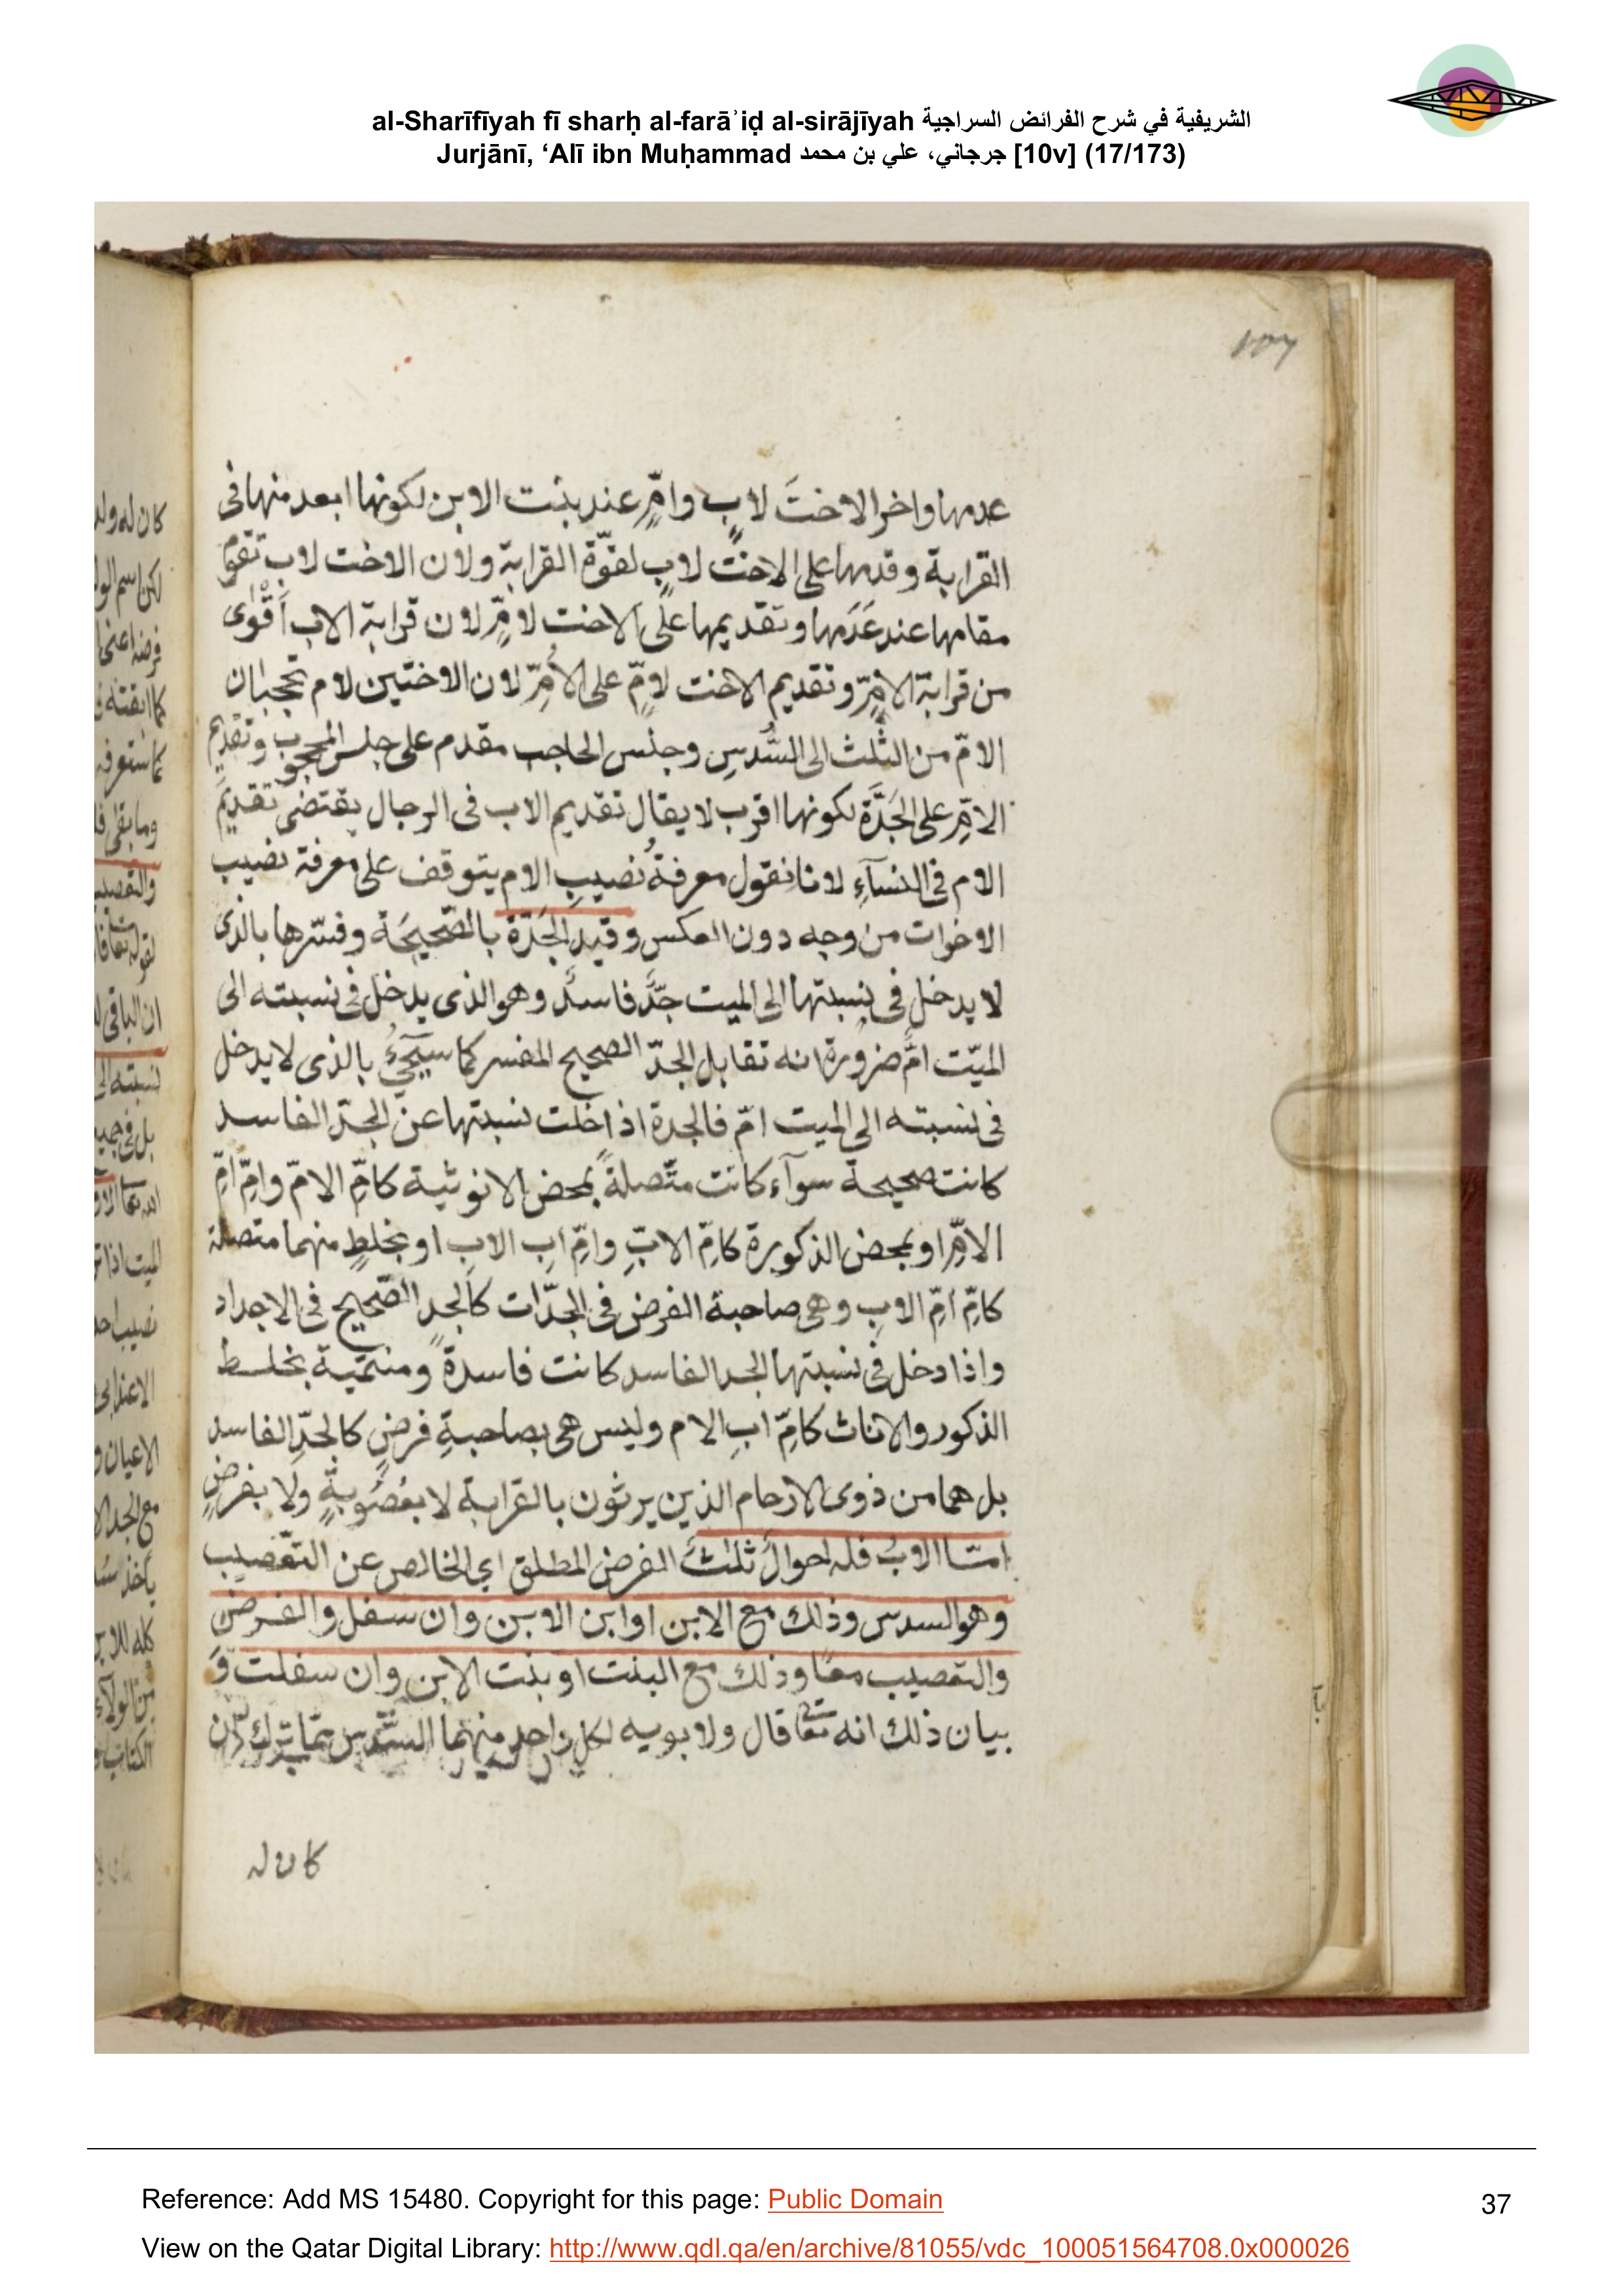 al-Sharīfīyah fī sharḥ al-farāʾiḍ al-sirājīyah الشريفية في شرح الفرائض السراجية
Jurjānī, ‘Alī ibn Muḥammad جرجاني، علي بن محمد [10v] (17/173)
عدمها واخر الاختَ لابٍ وامٍّ عند بنت الابن لكونها ابعد منها فى
القرابة وقدمها على الاخت لابٍ لقوّة القرابة ولان الاخت لاب تقوم
مقامها عند عَدَمها وتقديمها على الاخت لامٍّ لان قرابة الاب أَقْوٰى
من قرابة الامِّ وتقديم الاخت لامٍّ على الأُمِّ لان الاختين لام تحجبان
الامّ من الثلث الى السُّدسِ وجنس الحاجب مقدم على جنس المحجوب وتقديم
الامِّ على الجَدَّة لكونها اقرب لا يقال تقديم الاب فى الرجال يقتضى تقديمَ
الام فى النسآءِ لانا نقول معرفةُ نصيبِ الام يتوقف على معرفة نصيب
الاخوات من وجه دون العكس وقيد الجَدّة بالصّحيحَة وفسّرها بالذى
لا يدخل فى نسبتها الى الميت جدٌّ فاسدٌ وهو الذى يدخل فى نسبته الى
الميّت امٌّ ضرورة انه تقابل الجدّ الصحيح المفسر كما سيَجيْءُ بالذى لا يدخل
فى نسبته الى الميت امّ فالجدة اذا خلت نسبتها عن الجدّ الفاسد
كانت صحيحة سوآء كانت متّصلةً بمحض الانوثية كامِّ الامّ وامِّ امِّ
الامِّ او بمحض الذكورة كامِّ الابِّ وامِّ ابِ الابِ او بخلطٍ منهما متصلة
كامِّ امِّ الابِ وهى صاحبة الفرض فى الجدّات كالجد الصّحيح فى الاجداد
واذا دخل فى نسبتها الجد الفاسد كانت فاسدةً ومنتميّة بخلط
الذكور والاناث كامِّ ابِ الام وليس هى بصاحبةِ فرضٍ كالجدِّ الفاسد
بل هما من ذوى الارحام الذين يرثون بالقرابة لا بعُصُوبةٍ ولا بفرضٍ
امّا الابُ فله احوالٌ ثلٰثٌ الفرض المطلق اي الخالص عن التّعصيب
وهو السدس وذلك مع الابن او ابن الابن وان سفل والفرض
والتعصيب معًا وذلك مع البنت او بنت الابن وان سفلت وَ
بيان ذلك انه تعا قال ولابويه لكل واحدٍ منهما السّدس ممّا ترك ان
كان له
Reference: Add MS 15480. Copyright for this page: Public Domain
37
View on the Qatar Digital Library: http://www.qdl.qa/en/archive/81055/vdc_100051564708.0x000026